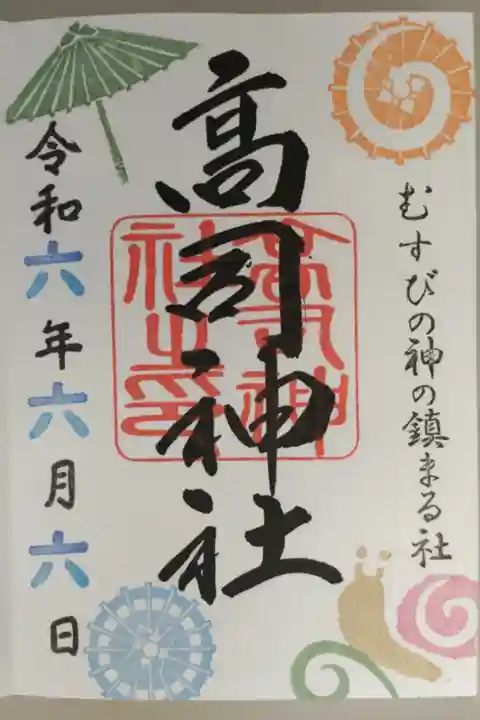 むすびの神の鎮まる社
高司神社
高司神社之印
令和六年六月六日